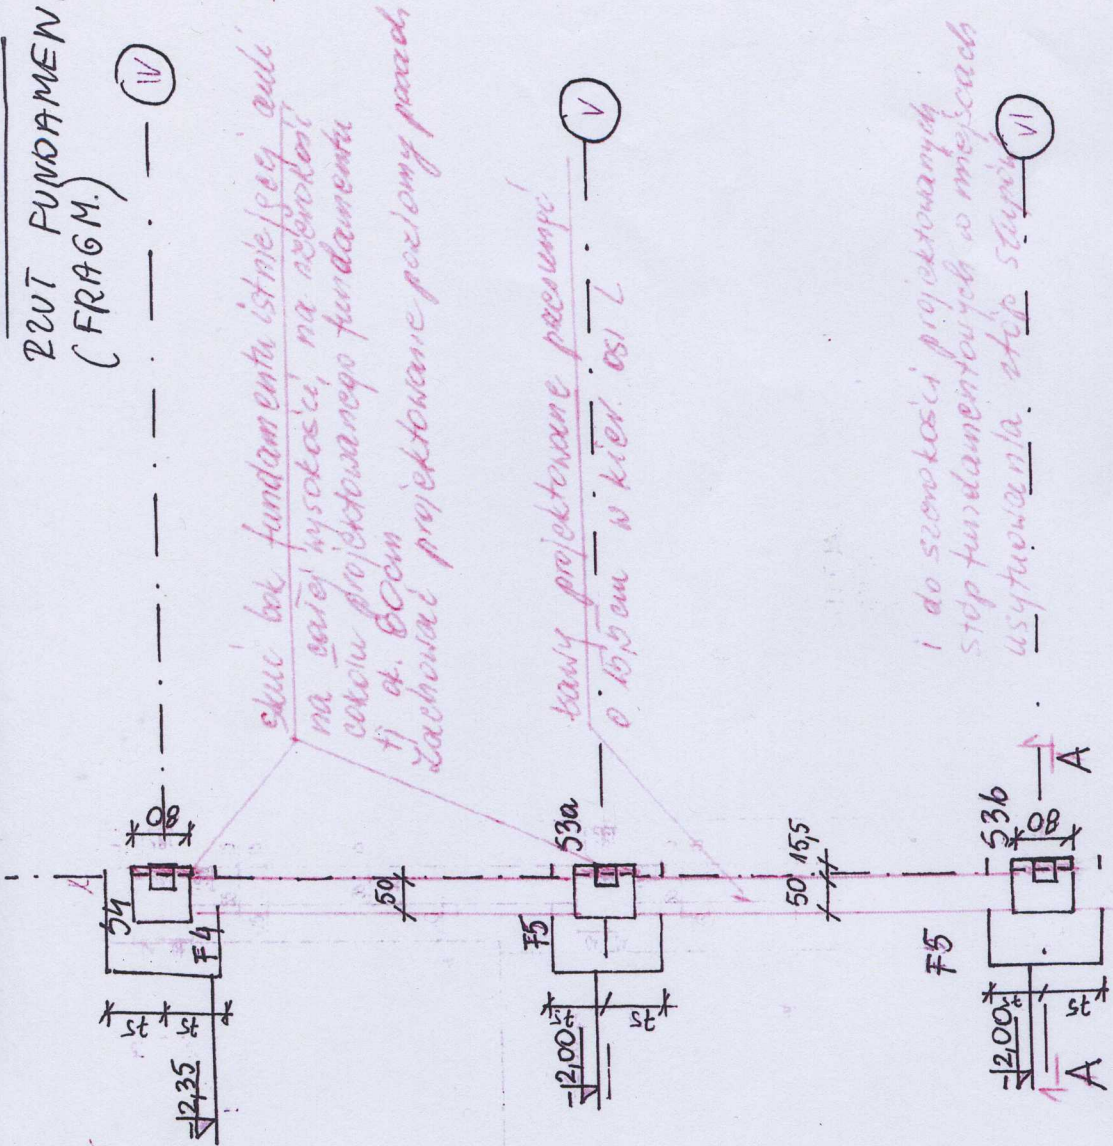 RZUT FUNDAMEN
(FRAGM.)
IV
skuć bok fundamentu istniejącej auli
na całej wysokości, na szerokość
cokołu projektowanego fundamentu
tj ok. 60cm
Zachować projektowane poziomy posad
V
ławy projektowane przesunąć
o 15,5 cm w kier. osi L
VI
i do szerokości projektowanych
stóp fundamentowych w miejscach
usytuowania stóp słupów
S4
80
F4
75
75
-2,35
50
S3a
F5
75
75
-2,00
50
15,5
S3b
80
F5
75
75
-2,00
A
A